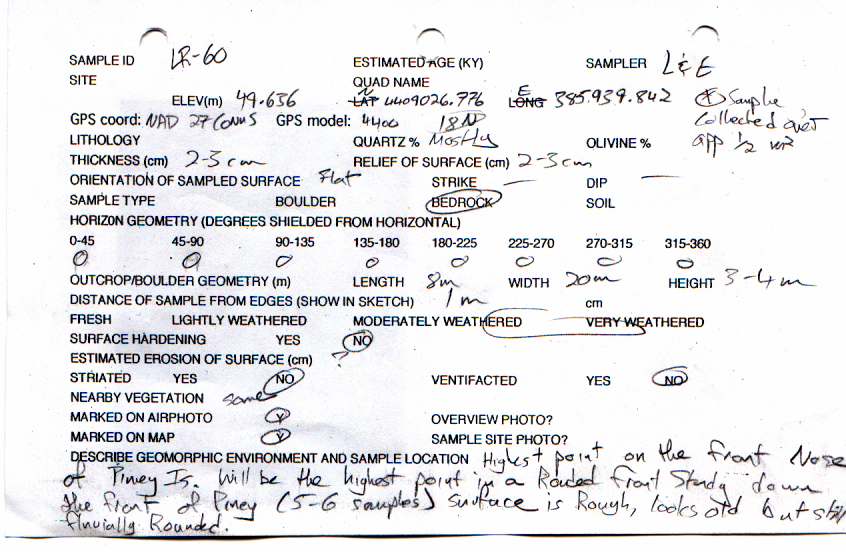 SAMPLE ID LR-60 ESTIMATED AGE (KY) SAMPLER L&E
SITE QUAD NAME
ELEV(m) 49.636 LAT N 4409026.776 LONG E 385.939.842 * Sample
GPS coord: NAD 27 CONUS GPS model: 4400 18N collected over
LITHOLOGY QUARTZ % Mostly OLIVINE % app 1/2 m²
THICKNESS (cm) 2-3 cm RELIEF OF SURFACE (cm) 2-3 cm
ORIENTATION OF SAMPLED SURFACE Flat STRIKE — DIP —
SAMPLE TYPE BOULDER BEDROCK SOIL
HORIZON GEOMETRY (DEGREES SHIELDED FROM HORIZONTAL)
0-45 45-90 90-135 135-180 180-225 225-270 270-315 315-360
0 0 0 0 0 0 0 0
OUTCROP/BOULDER GEOMETRY (m) LENGTH 8m WIDTH 20m HEIGHT 3-4m
DISTANCE OF SAMPLE FROM EDGES (SHOW IN SKETCH) 1m cm
FRESH LIGHTLY WEATHERED MODERATELY WEATHERED VERY WEATHERED
SURFACE HARDENING YES NO
ESTIMATED EROSION OF SURFACE (cm) ?
STRIATED YES NO VENTIFACTED YES NO
NEARBY VEGETATION some
MARKED ON AIRPHOTO Y OVERVIEW PHOTO?
MARKED ON MAP Y SAMPLE SITE PHOTO?
DESCRIBE GEOMORPHIC ENVIRONMENT AND SAMPLE LOCATION Highest point on the front Nose
of Piney Is. Will be the highest point in a Rouded front Study down
the front of Piney (5-6 samples) Surface is Rough, looks old but still
fluvially Rounded.